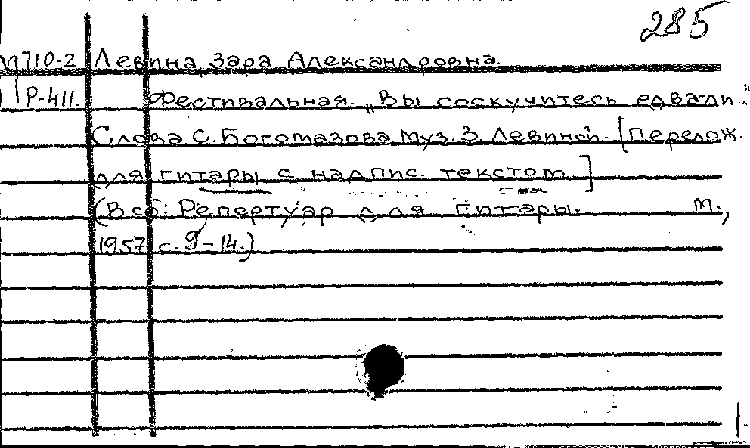 285
710-2 Левина Зара Александровна.
Р-411. Фестивальная. „Вы соскучитесь едвали."
Слова С. Богомазова муз. З. Левиной. [Перелож.
для гитары с надпис. текстом.]
(В сб: Репертуар для гитары. М.,
1957 с. 9-14.)